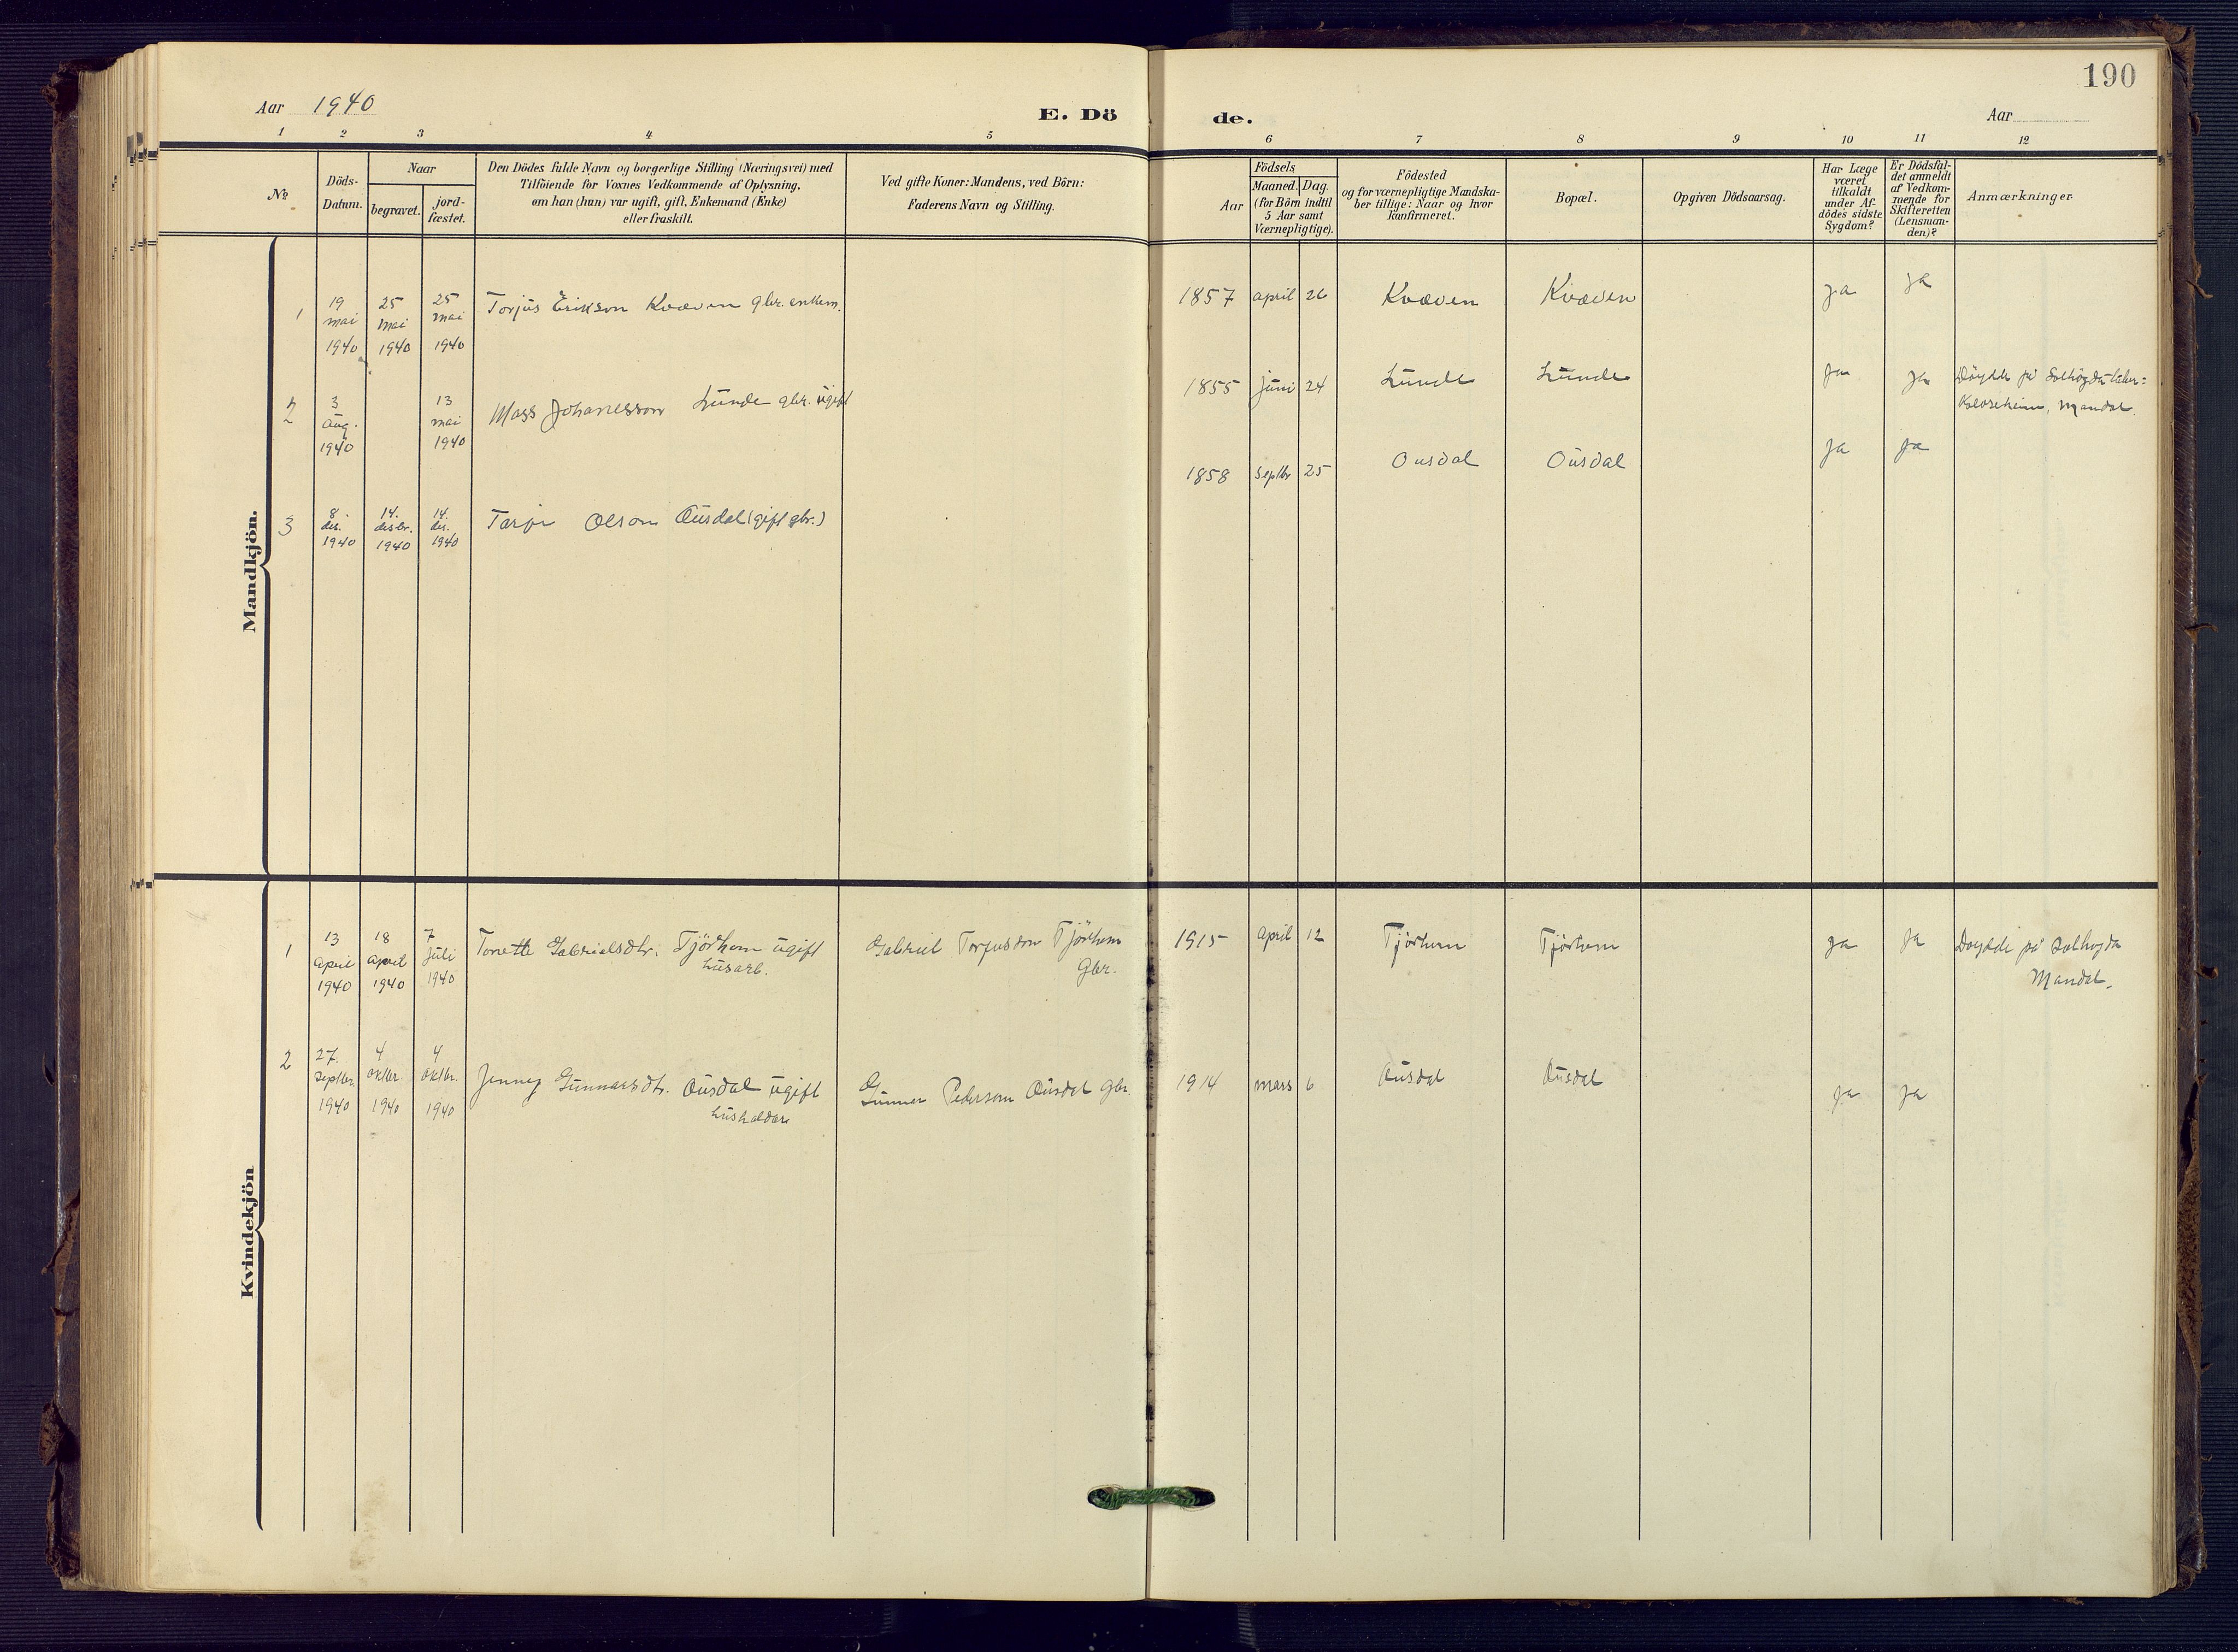 190
Aar 1940
E. Dö de.
Aar
1 2 3 4 5 6 7 8 9 10 11 12
No
Döds-
Datum.
Naar
begravet.
jord-
fæstet.
Den Dödes fulde Navn og borgerlige Stilling (Næringsvei) med
Tilföiende for Voxnes Vedkommende af Oplysning,
om han (hun) var ugift, gift, Enkemand (Enke)
eller fraskilt.
Ved gifte Koner: Mandens, ved Börn:
Faderens Navn og Stilling.
Födsels
Aar
Maaned. Dag.
(for Börn indtil
5 Aar samt
Værnepligtige).
Födested
og for værnepligtige Mandska-
ber tillige: Naar og hvor
konfirmeret.
Bopæl.
Opgiven Dödsaarsag.
Har Læge
været
tilkaldt
under Af-
dödes sidste
Sygdom?
Er Dödsfal-
det anmeldt
af Vedkom-
mende for
Skifteretten
(Lensman-
den)?
Anmærkninger.
Mandkjön.
1
19
mai
1940
25
mai
1940
25
mai
1940
Torjus Erikson Kvæven gbr. enkem.
1857 april 26 Kvæven Kvæven ja ja
2
3
aug.
1940
13
mai
1940
Mass Johanesson Lunde gbr. ugift
1855 juni 24 Lunde Lunde ja ja
Döydde på Solhøgda
Mandal.
3
8.
des.
1940
14.
desbr.
1940
14.
des.
1940
Tarje Olson Ousdal (gift gbr.)
1858 septbr 25 Ousdal Ousdal ja ja
Kvindekjön
1
13
april
1940
18
april
1940
7
juli
1940
Tonette Gabrielsdtr. Tjörhom ugift
husarb.
Gabriel Torjusson Tjörhom
Gbr.
1915 april 12 Tjörhom Tjörhom ja ja
Døydde på Solhøgda
Mandal.
2
27.
septbr.
1940
4
oktbr.
1940
4
oktbr.
1940
Jenney Gunnarsdtr. Ousdal ugift
hushaldar
Gunnar Pederson Ousdal gbr.
1914 mars 6 Ousdal Ousdal ja ja